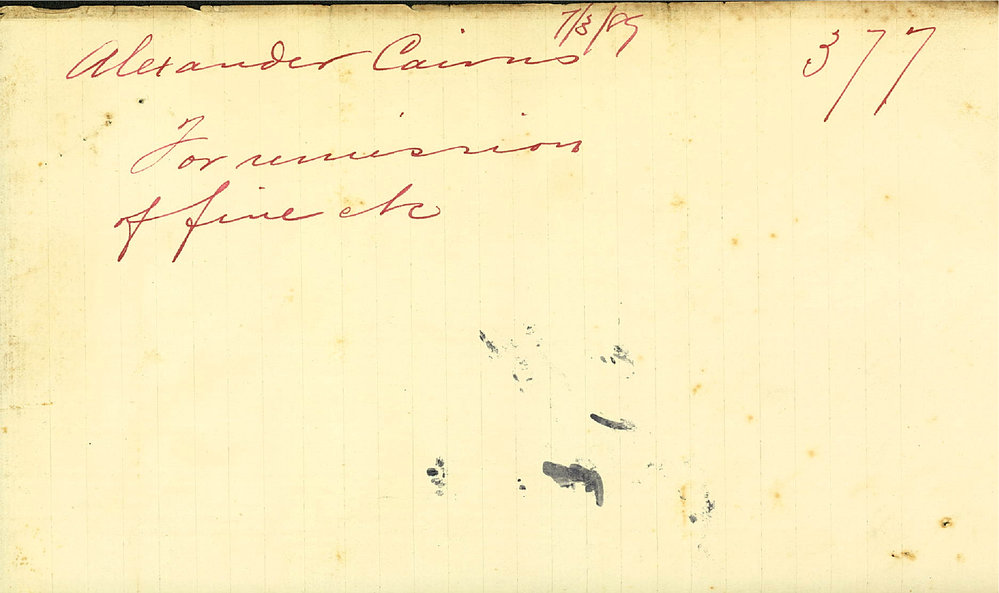 7/3/89
Alexander Cairns 377
For remission
of fine etc